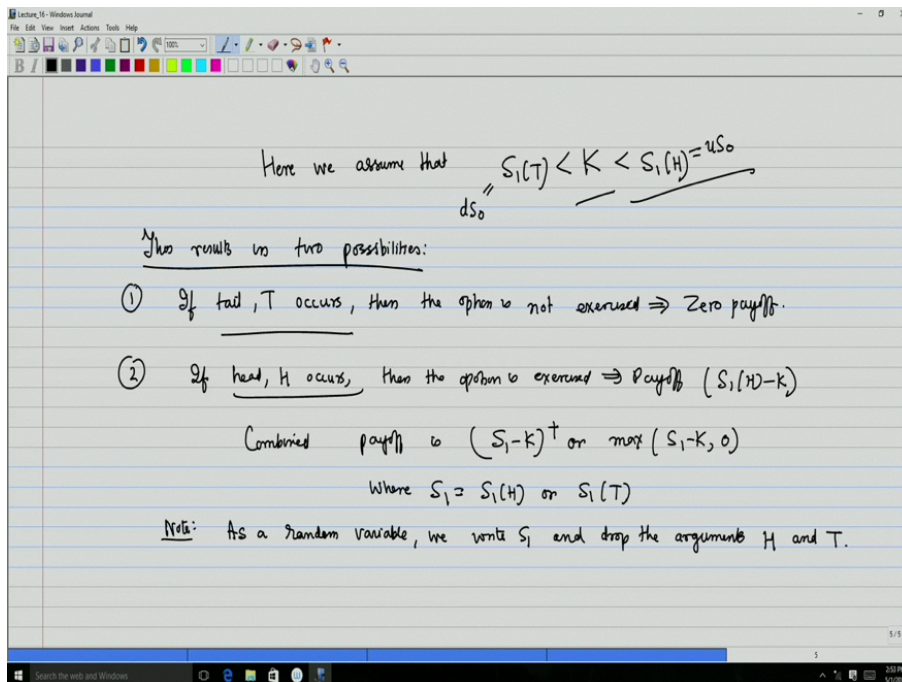 Lecture_16 - Windows Journal
File Edit View Insert Actions Tools Help
100%
B I
Here we assume that S₁(T) < K < S₁(H) = uS₀
dS₀ =
This results in two possibilities:
① If tail, T occurs, then the option is not exercised ⇒ Zero payoff.
② If head, H occurs, then the option is exercised ⇒ Payoff (S₁(H)-K)
Combined payoff is (S₁-K)⁺ or max (S₁-K, 0)
Where S₁ = S₁(H) or S₁(T)
Note: As a random variable, we write S₁ and drop the arguments H and T.
5/5
5
Search the web and Windows
2:53 PM